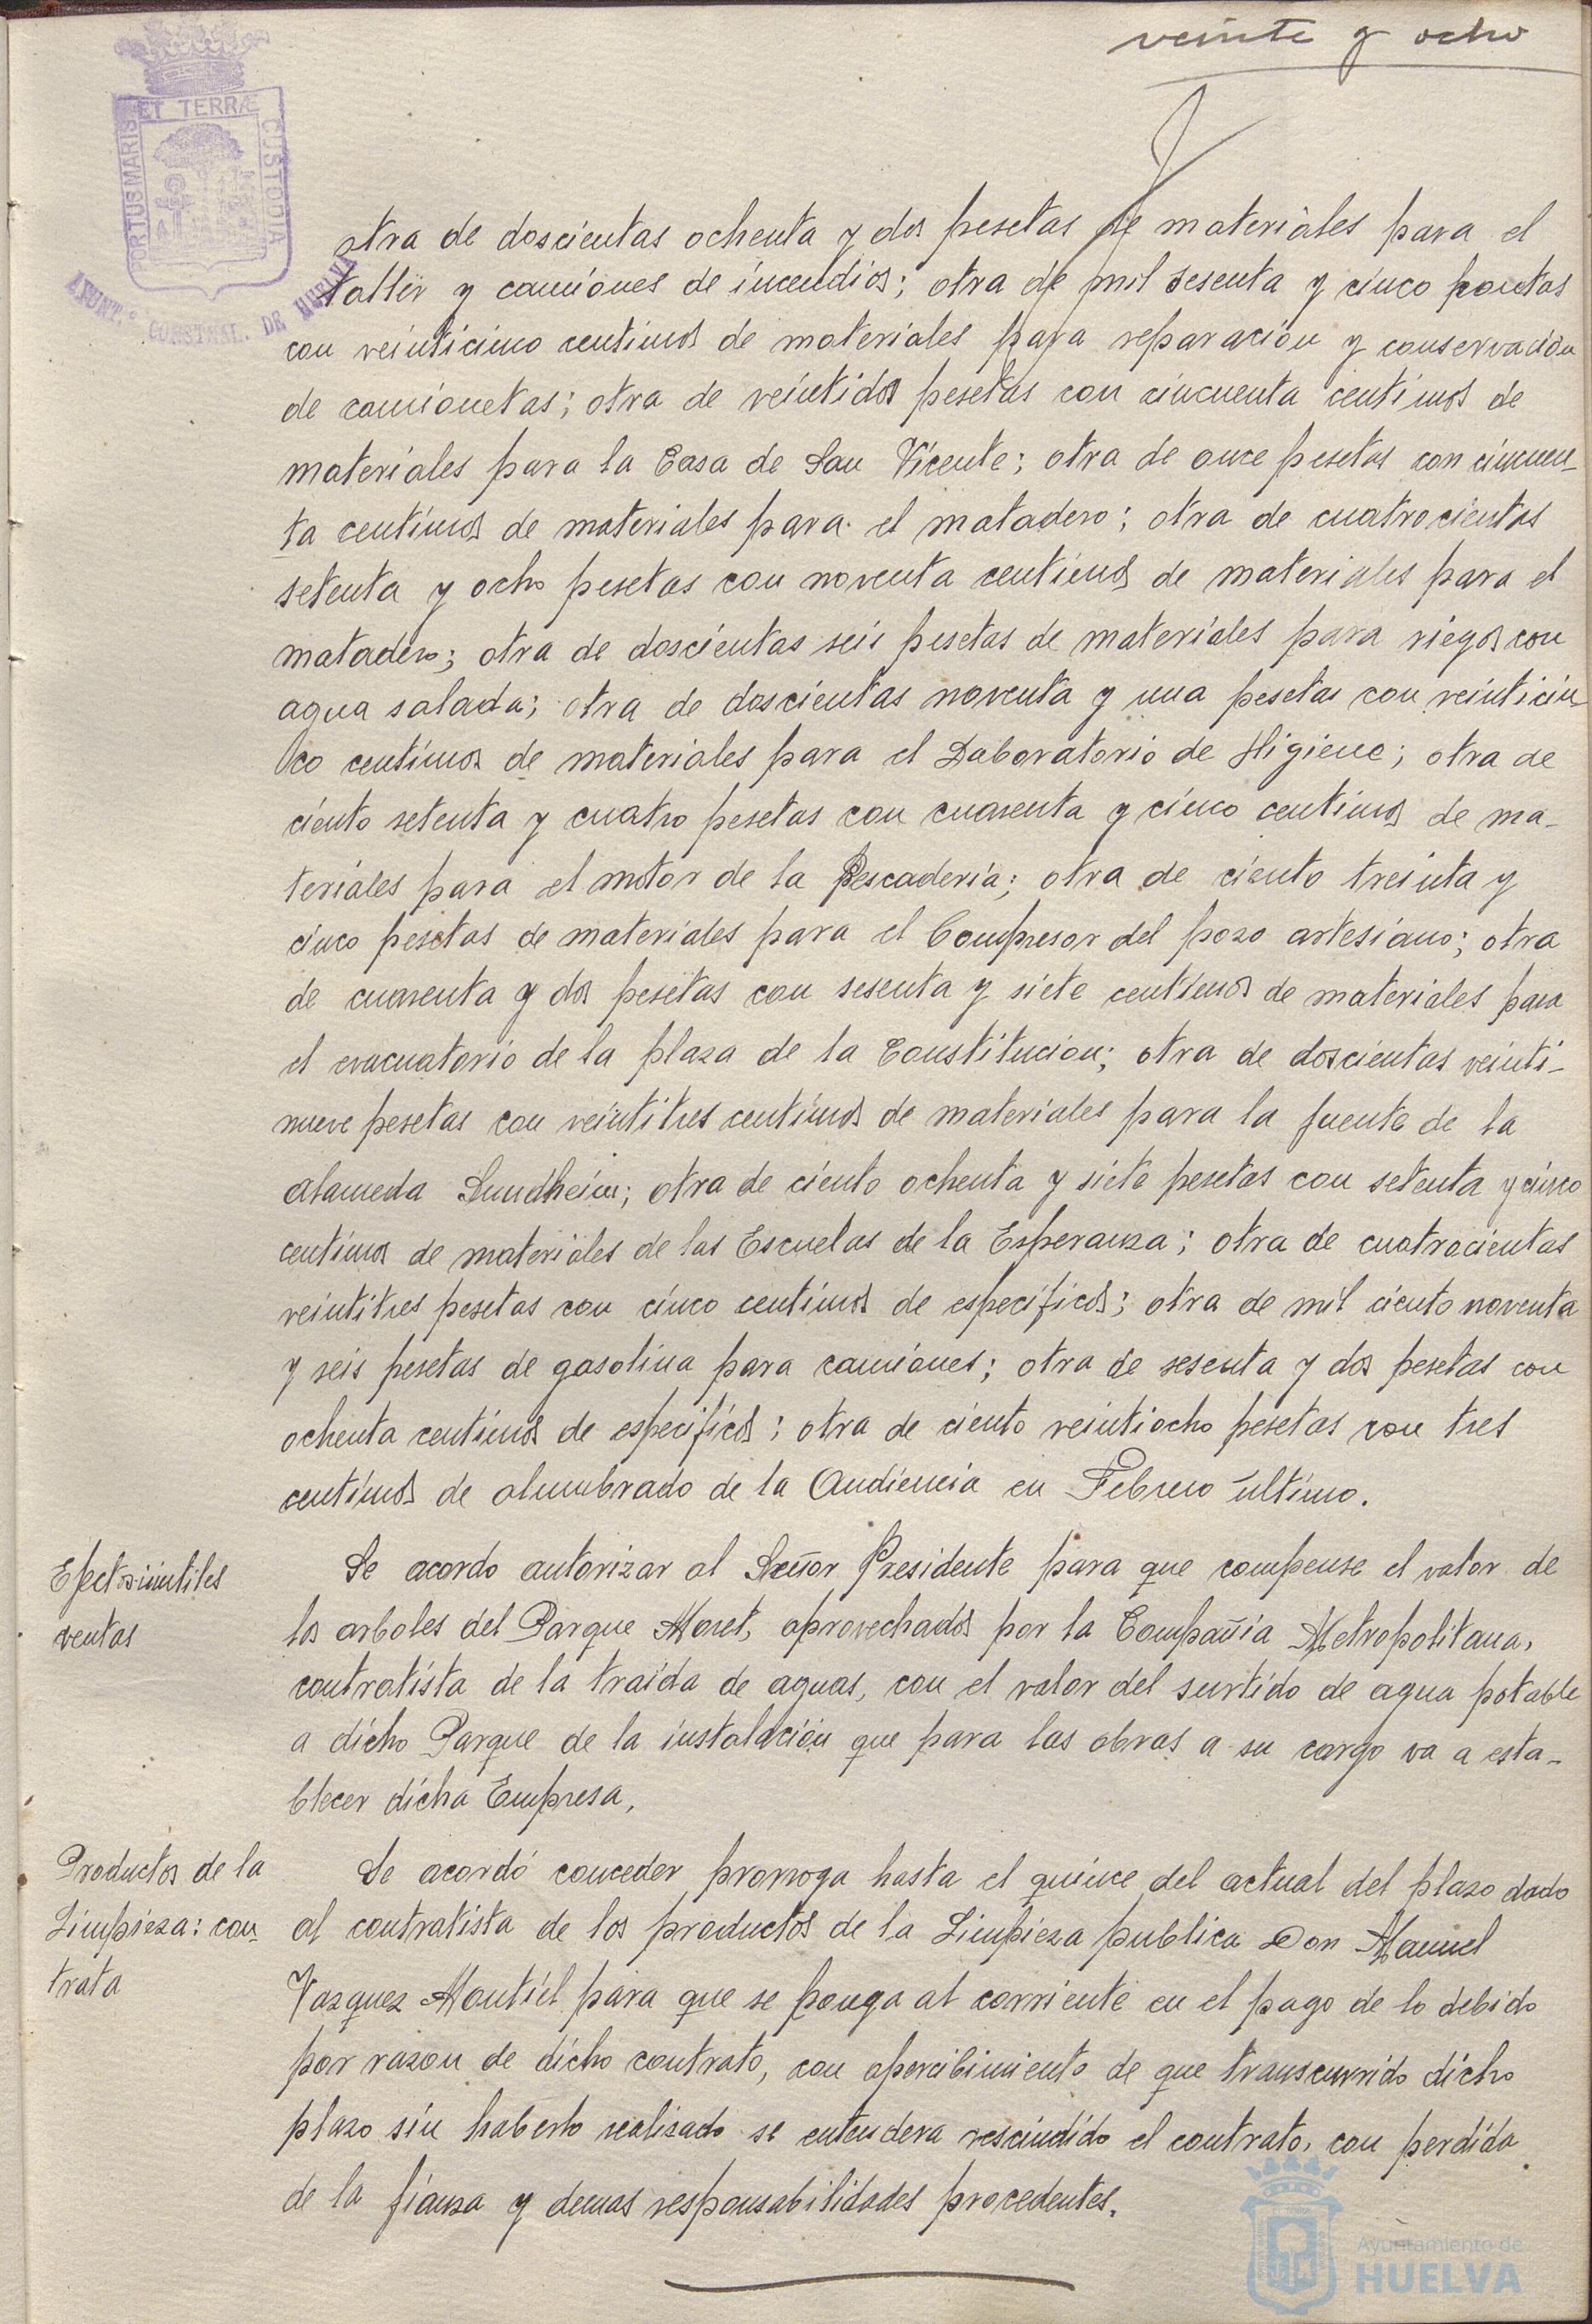 veinte y ocho
PORTUS MARIS ET TERRÆ CUSTODIA
AYUNT.º CONSTNAL. DE HUELVA
otra de doscientas ochenta y dos pesetas de materiales para el
taller y camiones de incendios; otra de mil sesenta y cinco pesetas
con veinticinco centimos de materiales para reparación y conservación
de camionetas; otra de veintidos pesetas con cincuenta centimos de
materiales para la Casa de San Vicente; otra de once pesetas con cincuen-
ta centimos de materiales para el matadero; otra de cuatrocientas
setenta y ocho pesetas con noventa centimos de materiales para el
matadero; otra de doscientas seis pesetas de materiales para riegos con
agua salada; otra de doscientas noventa y una pesetas con veinticin-
co centimos de materiales para el Laboratorio de Higiene; otra de
ciento setenta y cuatro pesetas con cuarenta y cinco centimos de ma-
teriales para el motor de la Pescaderia; otra de ciento treinta y
cinco pesetas de materiales para el Compresor del pozo artesiano; otra
de cuarenta y dos pesetas con sesenta y siete centimos de materiales para
el evacuatorio de la plaza de la Constitucion; otra de doscientas veinti-
nueve pesetas con veintitres centimos de materiales para la fuente de la
alameda Sundheim; otra de ciento ochenta y siete pesetas con setenta y cinco
centimos de materiales de las Escuelas de la Esperanza; otra de cuatrocientas
veintitres pesetas con cinco centimos de especificos; otra de mil ciento noventa
y seis pesetas de gasolina para camiones; otra de sesenta y dos pesetas con
ochenta centimos de especificos; otra de ciento veintiocho pesetas con tres
centimos de alumbrado de la Audiencia en Febrero último.
Efectos inutiles
ventas
Se acordo autorizar al Señor Presidente para que compense el valor de
los arboles del Parque Moret, aprovechados por la Compañia Metropolitana,
contratista de la traida de aguas, con el valor del surtido de agua potable
a dicho Parque de la instalación que para las obras a su cargo va a esta-
blecer dicha Empresa.
Productos de la
Limpieza: con-
trata
Se acordó conceder prorroga hasta el quince del actual del plazo dado
al contratista de los productos de la Limpieza publica Don Manuel
Vazquez Montiel para que se ponga al corriente en el pago de lo debido
por razon de dicho contrato, con apercibimiento de que transcurrido dicho
plazo sin haberlo realizado se entendera rescindido el contrato, con perdida
de la fianza y demas responsabilidades procedentes.
Ayuntamiento de
HUELVA